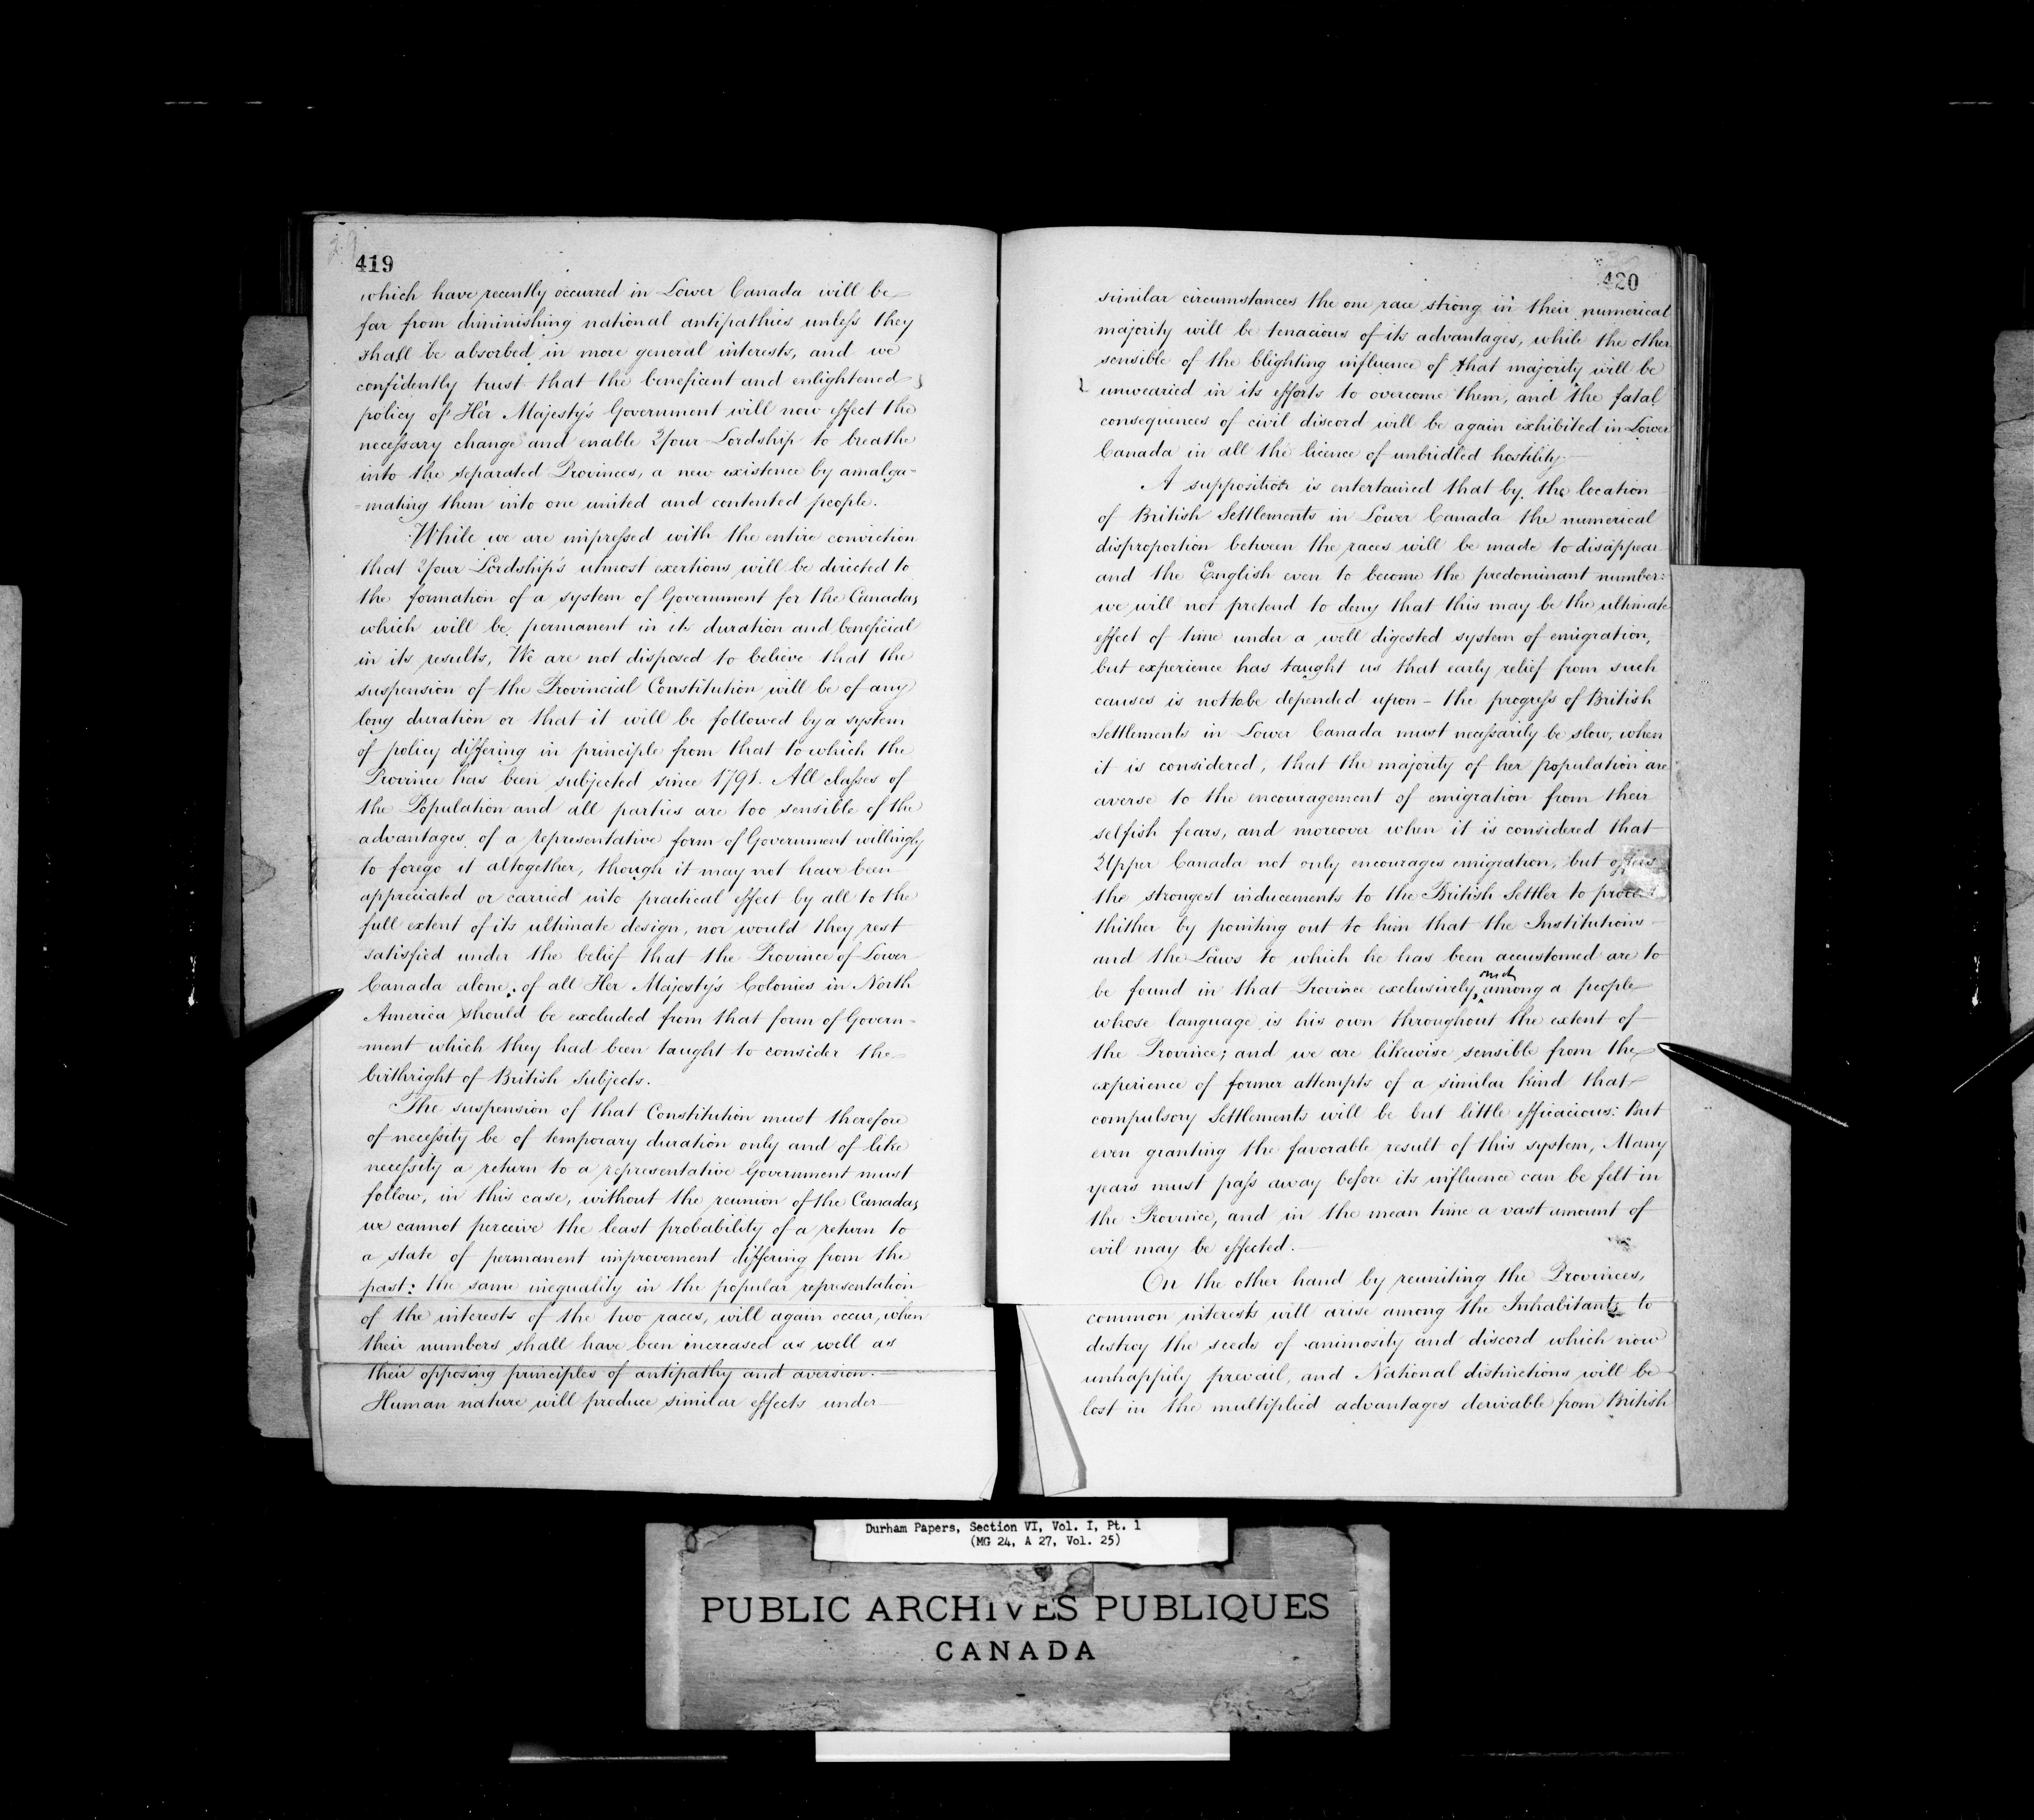 419
which have recently occurred in Lower Canada will be
far from diminishing national antipathies unless they
shall be absorbed in more general interests, and we
confidently trust that the beneficent and enlightened
policy of Her Majesty's Government will now effect the
necessary change and enable Your Lordship to breathe
into the separated Provinces, a new existence by amalga-
-mating them into one united and contented people.
While we are impressed with the entire conviction
that Your Lordship's utmost exertions will be directed to
the formation of a system of Government for the Canadas
which will be permanent in its duration and beneficial
in its results, We are not disposed to believe that the
suspension of the Provincial Constitution will be of any
long duration or that it will be followed by a system
of policy differing in principle from that to which the
Province has been subjected since 1791. All classes of
the Population and all parties are too sensible of the
advantages of a representative form of Government willingly
to forego it altogether, though it may not have been
appreciated or carried into practical effect by all to the
full extent of its ultimate design, nor would they rest
satisfied under the belief that the Province of Lower
Canada alone, of all Her Majesty's Colonies in North
America should be excluded from that form of Govern-
-ment which they had been taught to consider the
birthright of British Subjects.
The suspension of that Constitution must therefore
of necessity be of temporary duration only and of like
necessity a return to a representative Government must
follow, in this case, without the reunion of the Canadas
we cannot perceive the least probability of a return to
a state of permanent improvement differing from the
past: the same inequality in the popular representation
of the interests of the two races, will again occur, when
their numbers shall have been increased as well as
their opposing principles of antipathy and aversion.
Human nature will produce similar effects under
420
similar circumstances the one race strong in their numerical
majority will be tenacious of its advantages, while the other
sensible of the blighting influence of that majority will be
unwearied in its efforts to overcome them, and the fatal
consequences of civil discord will be again exhibited in Lower
Canada in all the licence of unbridled hostility.
A supposition is entertained that by the location
of British Settlements in Lower Canada the numerical
disproportion between the races will be made to disappear
and the English even to become the predominant number:
we will not pretend to deny that this may be the ultimate
effect of time under a well digested system of emigration,
but experience has taught us that early relief from such
causes is not to be depended upon - the progress of British
Settlements in Lower Canada must necessarily be slow, when
it is considered, that the majority of her population are
averse to the encouragement of emigration from their
selfish fears, and moreover when it is considered that
Upper Canada not only encourages emigration, but offers
the strongest inducements to the British Settler to proceed
thither by pointing out to him that the Institutions
and the Laws to which he has been accustomed are to
be found in that Province exclusively, and among a people
whose language is his own throughout the extent of
the Province; and we are likewise sensible from the
experience of former attempts of a similar kind that
compulsory Settlements will be but little efficacious: But
even granting the favorable result of this system, Many
years must pass away before its influence can be felt in
the Province, and in the mean time a vast amount of
evil may be effected.
On the other hand by reuniting the Provinces,
common interests will arise among the Inhabitants to
destroy the seeds of animosity and discord which now
unhappily prevail, and National distinctions will be
lost in the multiplied advantages derivable from British
Durham Papers, Section VI, Vol. I, Pt. 1
(MG 24, A 27, Vol. 25)
PUBLIC ARCHIVES PUBLIQUES
CANADA